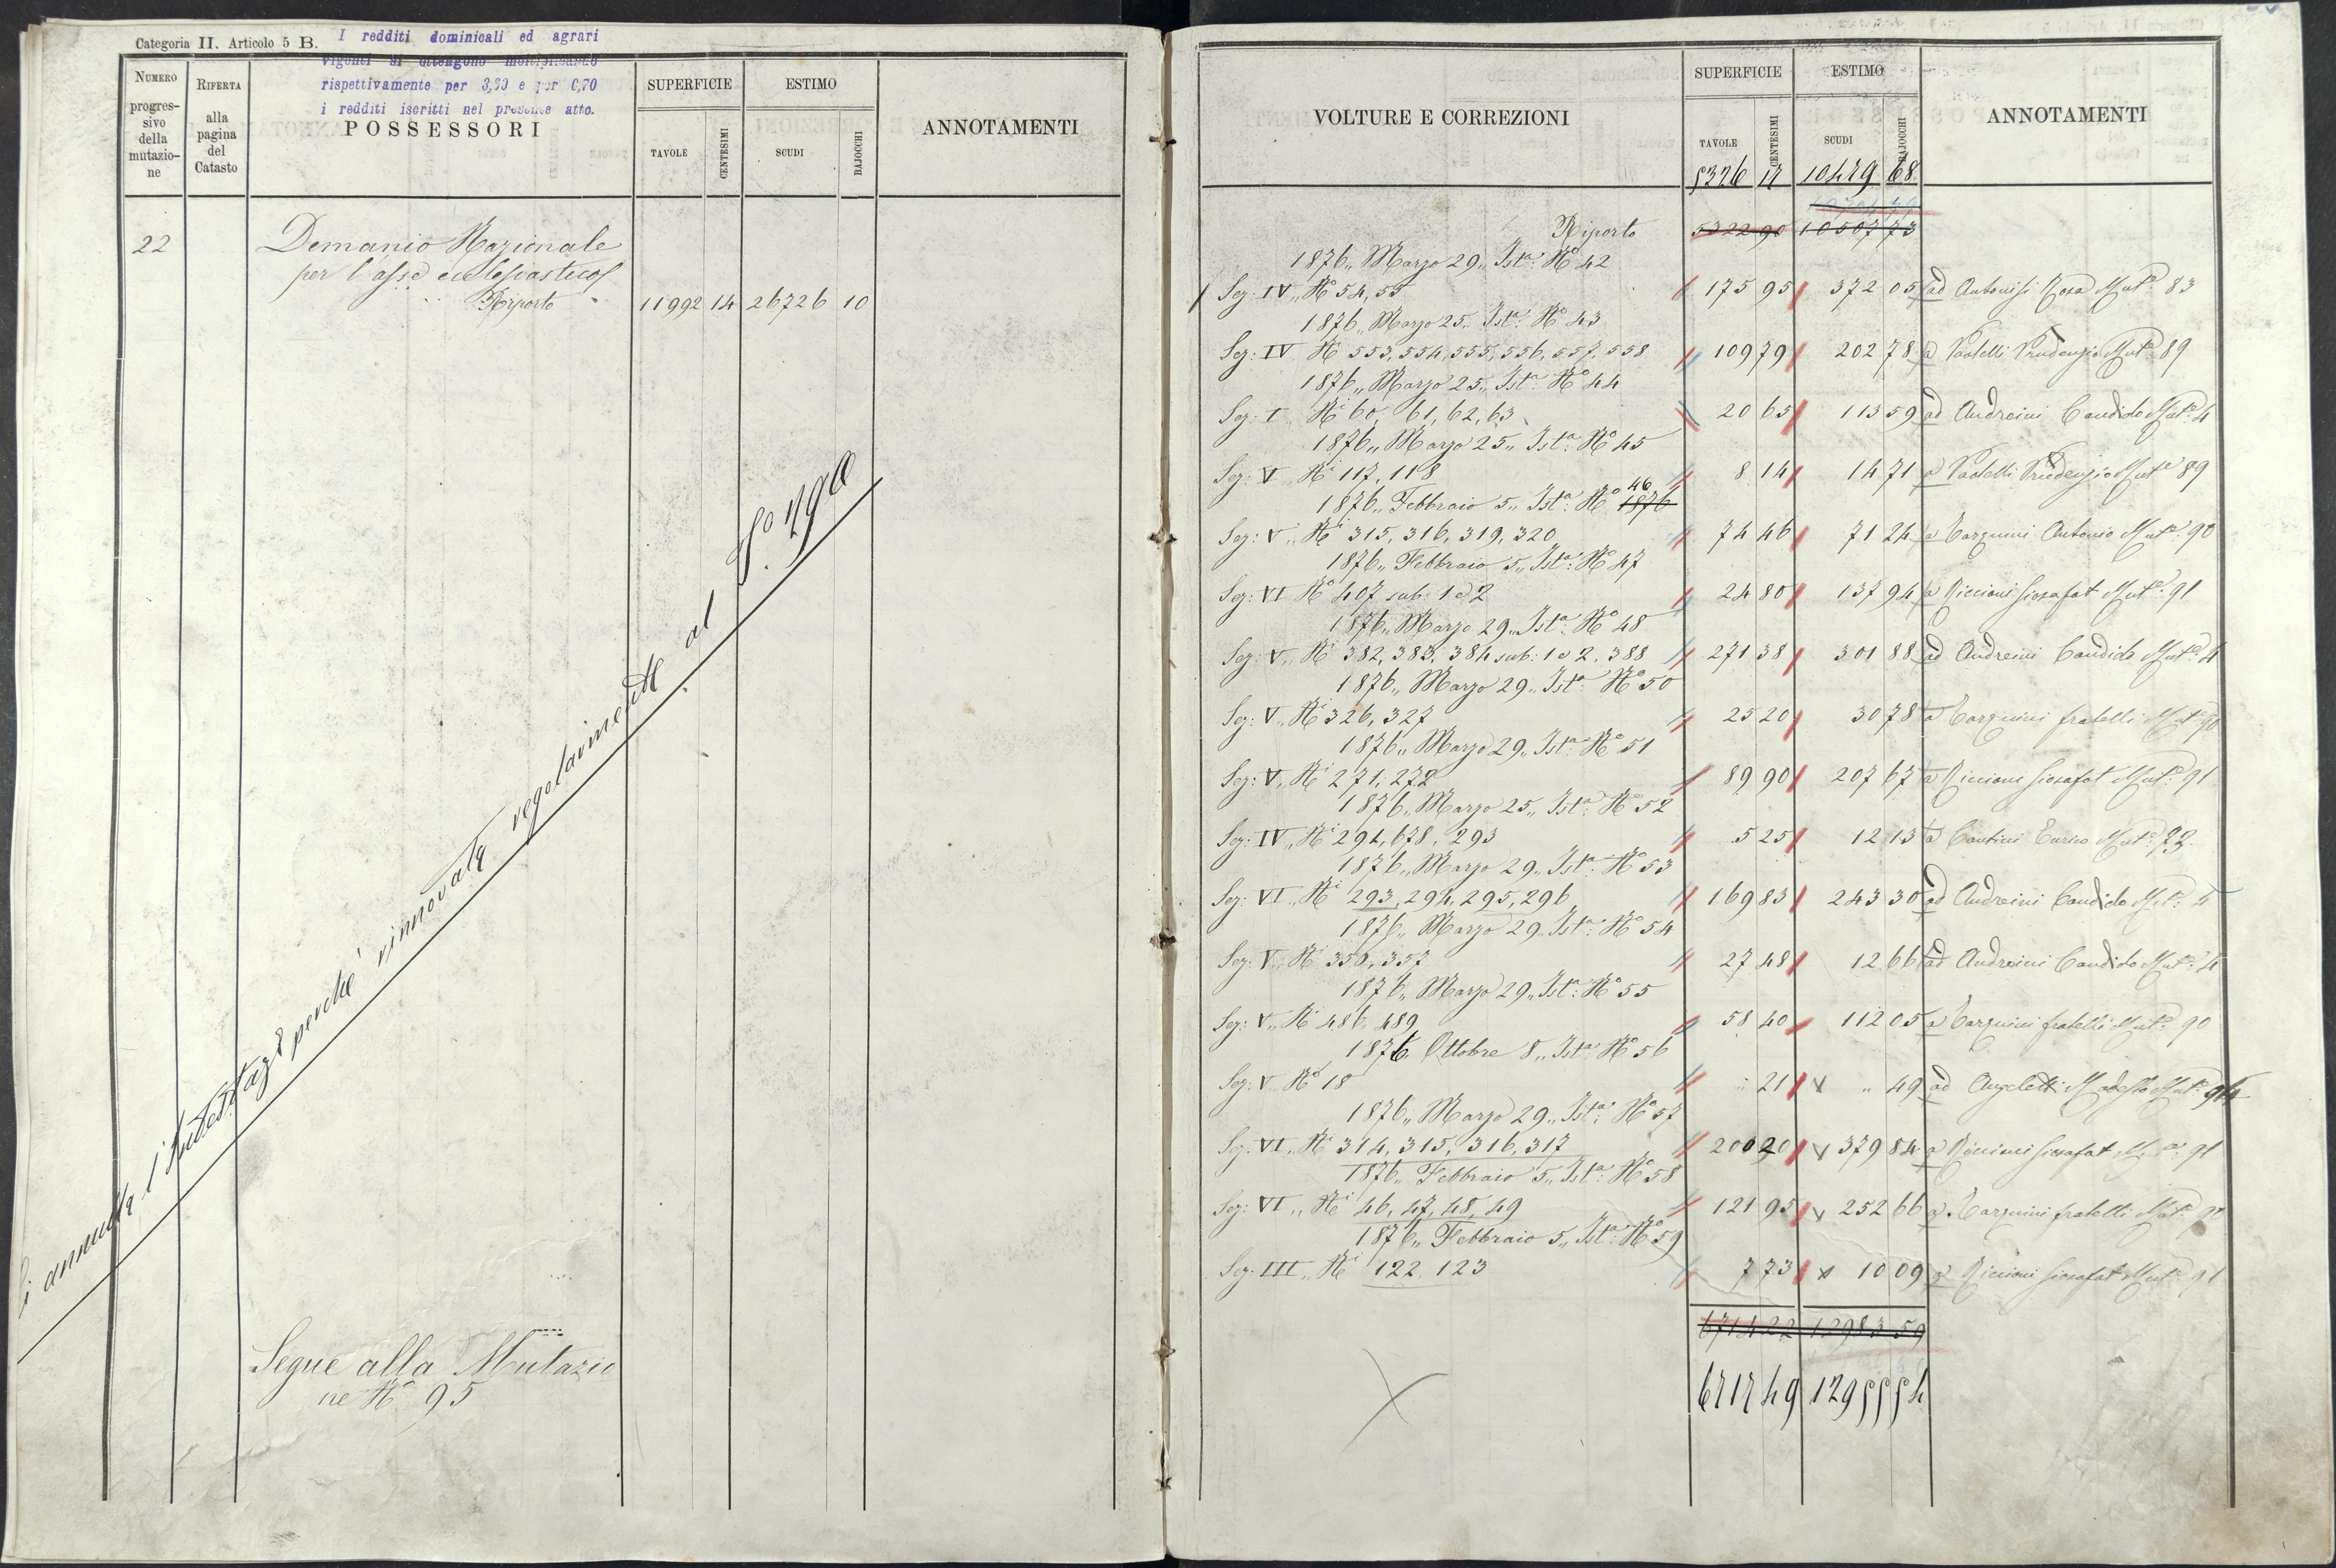 Categoria II. Articolo 5 B.
I redditi dominicali ed agrari
vigenti si ottengono moltiplicando
rispettivamente per 3,60 e per 0,70
i redditi iscritti nel presente atto.
NUMERO progressivo della mutazione
RIFERTA alla pagina del Catasto
POSSESSORI
SUPERFICIE
TAVOLE
CENTESIMI
ESTIMO
SCUDI
BAJOCCHI
ANNOTAMENTI
22
Demanio Nazionale
per l'asse ecclesiastico
Riporto 11992 14 26726 10
Si annulla l'Intestaz.e perchè rinnovata regolarmente al
Segue alla Mutazio
ne N.o 95
VOLTURE E CORREZIONI
SUPERFICIE
TAVOLE
CENTESIMI
ESTIMO
SCUDI
BAJOCCHI
ANNOTAMENTI
5326 17 10479 68
Riporto 5322 90 10507 73
1876,, Marzo 29,, Ist.a N.o 42
Sez: IV,, N.i 54, 55 175 95 372 05 ad Antonisi Rosa Mut.e 83
1876,, Marzo 25,, Ist.a N.o 43
Sez: IV N.i 553, 554, 555, 556, 557, 558 109 79 202 78 a Paolelli Prudenzio Mut.e 89
1876,, Marzo 25,, Ist.a N.o 44
Sez: I,, N.i 60, 61, 62, 63 20 65 113 59 ad Andreini Candido Mut.e 4
1876,, Marzo 25,, Ist.a N.o 45
Sez: V N.i 117, 118 8 14 14 71 a Paolelli Prudenzio Mut.e 89
1876,, Febbraio 5,, Ist.a N.o 1876 46
Sez: V,, N.i 315, 316, 319, 320 74 46 71 24 a Tarquini Antonio Mut.e 90
1876,, Febbraio 5,, Ist.a N.o 47
Sez: VI N.o 407 sub: 1 e 2 24 80 137 94 a Riccioni Giosafat Mut.e 91
1876,, Marzo 29,, Ist.a N.o 48
Sez: V,, N.i 382, 383, 384 sub: 1 e 2, 388 271 38 301 88 ad Andreini Candido Mut.e 4
1876,, Marzo 29,, Ist.a N.o 50
Sez: V,, N.i 326, 327 25 20 30 78 a Tarquini fratelli Mut.e 90
1876,, Marzo 29,, Ist.a N.o 51
Sez: V,, N.i 271, 272 89 90 207 67 a Riccioni Giosafat Mut.e 91
1876,, Marzo 25,, Ist.a N.o 52
Sez: IV,, N.i 294, 678, 293 5 25 12 13 a Cantini Enrico Mut.e
1876,, Marzo 29,, Ist.a N.o 53
Sez: VI,, N.i 293, 294, 295, 296 169 83 243 30 ad Andreini Candido Mut.e 4
1876,, Marzo 29,, Ist.a N.o 54
Sez: V,, N.i 350, 357 27 48 12 66 ad Andreini Candido Mut.e 4
1876,, Marzo 29,, Ist.a N.o 55
Sez: V,, N.i 486, 489 58 40 112 05 a Tarquini fratelli Mut.e 90
1876, Ottobre 8,, Ist.a N.o 56
Sez: V N.o 18 ,, 21 ,, 49 ad Angeletti Modesto Mut.e 94
1876,, Marzo 29,, Ist.a N.o 57
Sez: VI,, N.i 314, 315, 316, 317 200 20 379 84 a Riccioni Giosafat Mut.e 91
1876,, Febbraio 5,, Ist.a N.o 58
Sez: VI,, N.i 46, 47, 48, 49 121 95 252 66 a Tarquini fratelli Mut.e 90
1876,, Febbraio 5,, Ist.a N.o 59
Sez: III,, N.i 122, 123 7 73 10 09 a Riccioni Giosafat Mut.e 91
6714 22 12983 59
6717 49 12955 54